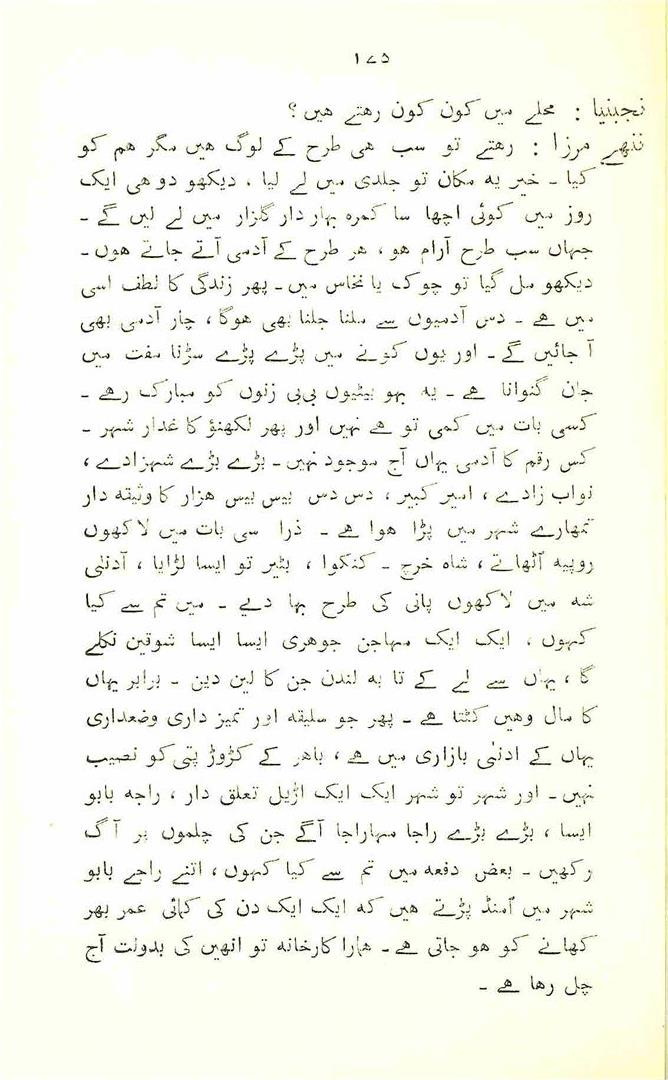 ۱۷۵
نجبنیا : محلے میں کون کون رهتے هیں ؟
ننھے مرزا : رهتے تو سب هی طرح کے لوگ هیں مگر هم کو
کیا ۔ خیر یه مکان تو جلدی میں لے لیا ، دیکھو دو هی ایک
روز میں کوئی اچھا سا کمرہ بہار دار گلزار میں لے لیں گے ۔
جہاں سب طرح آرام هو ، هر طرح کے آدمی آتے جاتے هوں ۔
دیکھو مل گیا تو چوک یا نخاس میں ۔ پھر زندگی کا لطف اسی
میں هے ۔ دس آدمیوں سے ملنا جلنا بھی هوگا ، چار آدمی بھی
آ جائیں گے ۔ اور یوں کونے میں پڑے پڑے سڑنا مفت میں
جان گنوانا هے ۔ یه بہو بیٹیوں بی‌بی زنوں کو مبارک رهے ۔
کسی بات میں کمی تو هے نہیں اور پھر لکھنؤ کا غدار شہر ۔
کس رقم کا آدمی یہاں آج موجود نہیں ۔ بڑے بڑے شہزادے ،
نواب زادے ، امیر کبیر ، دس دس بیس بیس هزار کا وثیقه دار
تمھارے شہر میں پڑا هوا هے ۔ ذرا سی بات میں لاکھوں
روپیه اُٹھاتے ، شاہ خرچ ۔ کنکوا ، بٹیر تو ایسا لڑایا ، آدنیٰ
شه میں لاکھوں پانی کی طرح بہا دیے ۔ میں تم سے کیا
کہوں ، ایک ایک مہاجن جوهری ایسا ایسا شوقین نکلے
گا ، یہاں سے لے کے تا به لندن جن کا لین دین ۔ برابر یہاں
کا مال وهیں کٹتا هے ۔ پھر جو سلیقه اور تمیز داری وضعداری
یہاں کے ادنیٰ بازاری میں هے ، باهر کے کڑوڑ پتی کو نصیب
نہیں ۔ اور شہر تو شہر ایک ایک اڑیل تعلق دار ، راجه بابو
ایسا ، بڑے بڑے راجا مہاراجا آگے جن کی چلموں پر آگ
رکھیں ۔ بعض دفعه میں تم سے کیا کہوں ، اتنے راجے بابو
شہر میں اُمنڈ پڑتے هیں که ایک ایک دن کی کمائی عمر بھر
کھانے کو هو جاتی هے ۔ همارا کارخانه تو انھیں کی بدولت آج
چل رها هے ۔